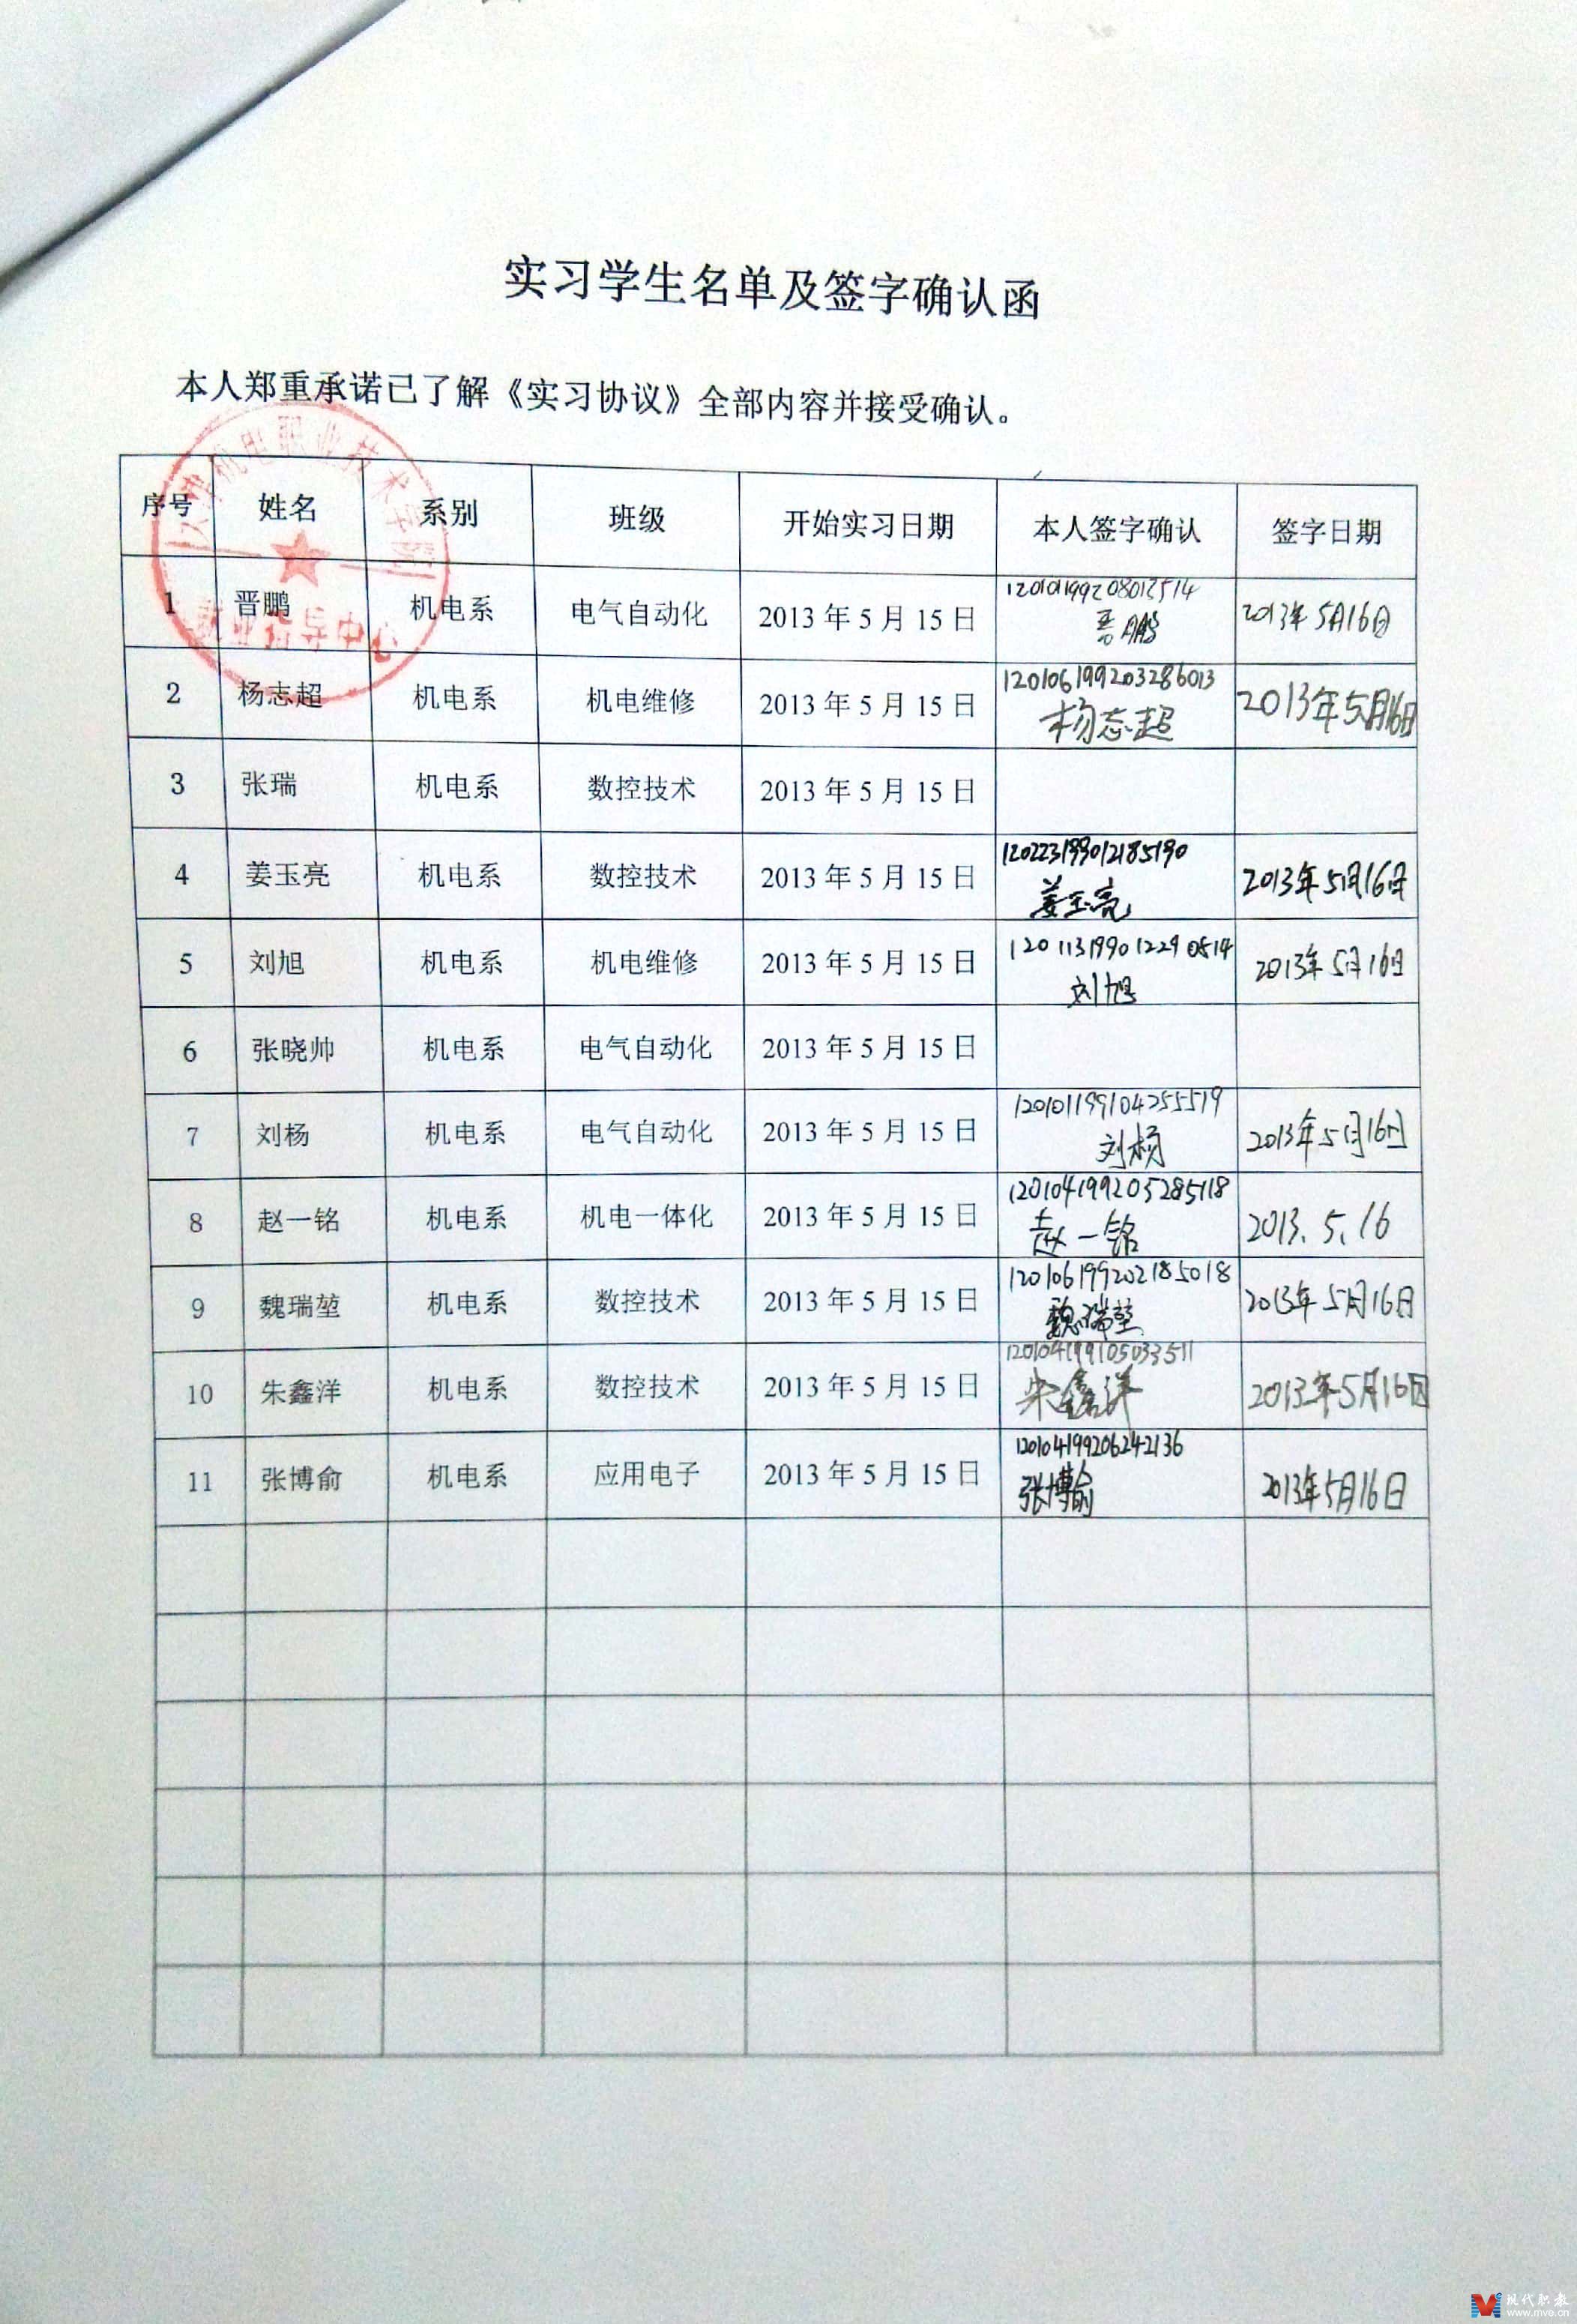 实习学生名单及签字确认函
本人郑重承诺已了解《实习协议》全部内容并接受确认。
天津机电职业技术学院
就业指导中心
序号 姓名 系别 班级 开始实习日期 本人签字确认 签字日期
1 晋鹏 机电系 电气自动化 2013年5月15日 晋鹏 2013年5月16日
120101199208012514
2 杨志超 机电系 机电维修 2013年5月15日 杨志超 2013年5月16日
120106199203286013
3 张瑞 机电系 数控技术 2013年5月15日
4 姜玉亮 机电系 数控技术 2013年5月15日 姜玉亮 2013年5月16日
120223199012185190
5 刘旭 机电系 机电维修 2013年5月15日 刘旭 2013年5月16日
6 张晓帅 机电系 电气自动化 2013年5月15日
7 刘杨 机电系 电气自动化 2013年5月15日 刘杨 2013年5月16日
120101199104255519
8 赵一铭 机电系 机电一体化 2013年5月15日 赵一铭 2013.5.16
120104199205285118
9 魏瑞堃 机电系 数控技术 2013年5月15日 魏瑞堃 2013年5月16日
120106199202185018
10 朱鑫洋 机电系 数控技术 2013年5月15日 朱鑫洋 2013年5月16日
120104199105033511
11 张博俞 机电系 应用电子 2013年5月15日 张博俞 2013年5月16日
120104199206242136
现代职教
www.mve.cn